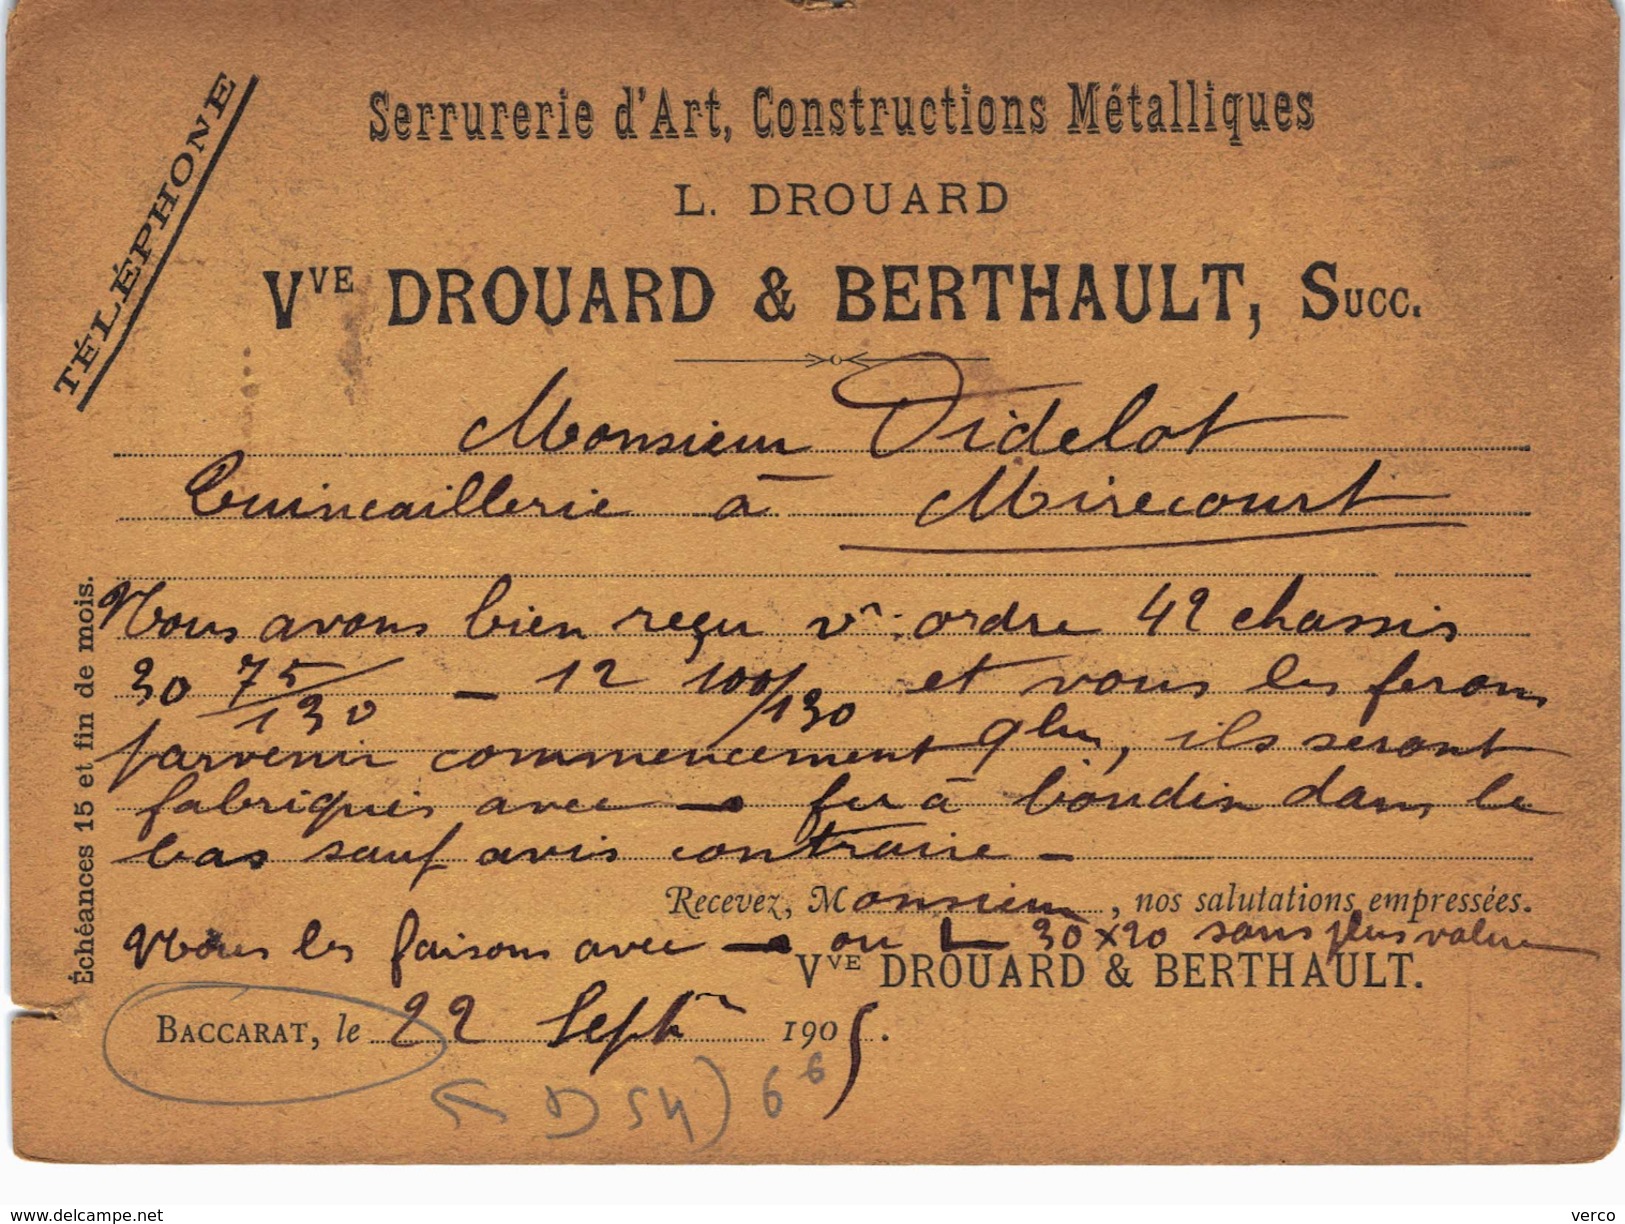 TÉLÉPHONE
Serrurerie d'Art, Constructions Métalliques
L. DROUARD
VVE DROUARD & BERTHAULT, Succ.
Monsieur Didelot
Quincaillerie à Mirecourt
Échéances 15 et fin de mois.
Nous avons bien reçu v^: ordre 42 chassis
30 75/130 – 12 100/130 et vous les ferons
parvenir commencement 9bre, ils seront
fabriqués avec fer à boudin dans le
bas sauf avis contraire –
Recevez, Monsieur, nos salutations empressées.
Nous les faisons avec ou L 30x20 sans plus value
VVE DROUARD & BERTHAULT.
BACCARAT, le 22 Septbre 1905.
D54) 6 6
www.delcampe.net
verco